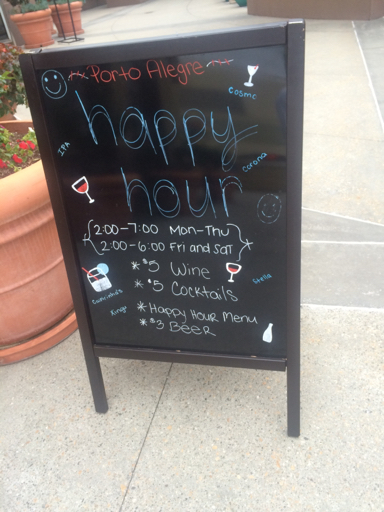 Porto Alegre
Cosmo
happy
IPA
Corona
hour
2:00-7:00 Mon-Thu
2:00-6:00 Fri and Sat
* $5 Wine
Stella
* $5 Cocktails
* Happy Hour Menu
* $3 Beer